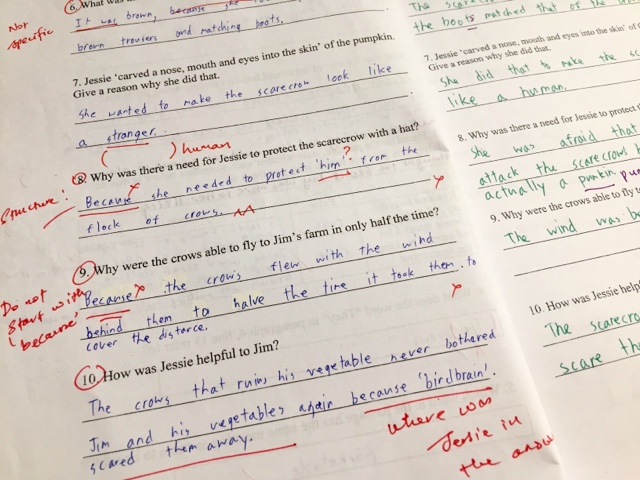 6. What was
Not
specific
It was brown, because she
brown trousers and matching boots.
7. Jessie 'carved a nose, mouth and eyes into the skin' of the pumpkin.
Give a reason why she did that.
She wanted to make the scarecrow look like
a stranger.
( ) human
8. Why was there a need for Jessie to protect the scarecrow with a hat?
Structure!
Because she needed to protect 'him' ? from the
flock of crows.
9. Why were the crows able to fly to Jim's farm in only half the time?
Do not
start with
'because'
Because the crows flew with the wind
behind them to halve the time it took them to
cover the distance.
10. How was Jessie helpful to Jim?
The crows that ruins his vegetable never bothered
Jim and his vegetables again because 'birdbrain'.
scared them away.
where was
Jessie in
the
The
the boots matched that of the
7. Jessie 'carved a nose, mouth and eyes into the skin' of
Give a reason why she did that.
She did that to make the
like a human.
8. Why was there a need for Jessie to protect
She was afraid that
attack the scarecrow
actually a pumkin
9. Why were the crows able to fly
The wind was
10. How was Jessie
The
scare